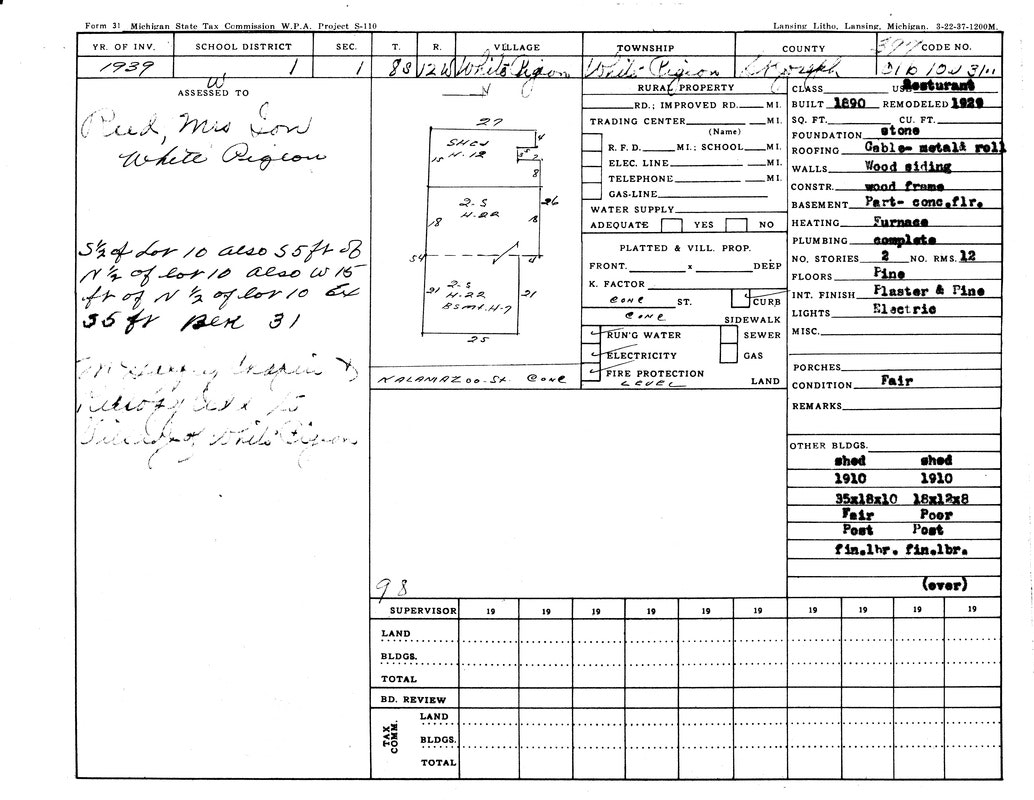 Form 31 Michigan State Tax Commission W.P.A. Project S-110
Lansing Litho, Lansing, Michigan. 3-22-37-1200M.
YR. OF INV. SCHOOL DISTRICT SEC. T. R. VILLAGE TOWNSHIP COUNTY CODE NO.
1939 1 1 8S 12W White Pigeon White Pigeon St. Joseph
W
ASSESSED TO
Reed, Mrs
White Pigeon
S½ of Lot 10 also S 5 ft of
N ½ of lot 10 also W 15
ft of N ½ of lot 10 Ex
S 5 ft BLK 31
White Pigeon
N
27
SHED
H-12
4
15
7
8
2-S
H-22
26
18
18
54
4
2-S
H-22
BSMT. H-7
21
21
25
KALAMAZOO-ST. CONC
98
RURAL PROPERTY
RD.; IMPROVED RD. MI.
TRADING CENTER MI.
(Name)
R. F. D. MI.; SCHOOL MI.
ELEC. LINE MI.
TELEPHONE MI.
GAS-LINE
WATER SUPPLY
ADEQUATE YES NO
PLATTED & VILL. PROP.
FRONT. x DEEP
K. FACTOR
CONC ST. CURB
CONC SIDEWALK
RUN'G WATER SEWER
ELECTRICITY GAS
FIRE PROTECTION
LEVEL LAND
CLASS USE Resturant
BUILT 1890 REMODELED 1929
SQ. FT. CU. FT.
FOUNDATION stone
ROOFING Gable- metal& roll
WALLS Wood siding
CONSTR. wood frame
BASEMENT Part- conc.flr.
HEATING Furnace
PLUMBING complete
NO. STORIES 2 NO. RMS. 12
FLOORS Pine
INT. FINISH Plaster & Pine
LIGHTS Electric
MISC.
PORCHES
CONDITION Fair
REMARKS
OTHER BLDGS.
shed shed
1910 1910
35x18x10 18x12x8
Fair Poor
Post Post
fin.lbr. fin.lbr.
(over)
SUPERVISOR 19 19 19 19 19 19 19 19 19 19
LAND
BLDGS.
TOTAL
BD. REVIEW
TAX COMM.
LAND
BLDGS.
TOTAL